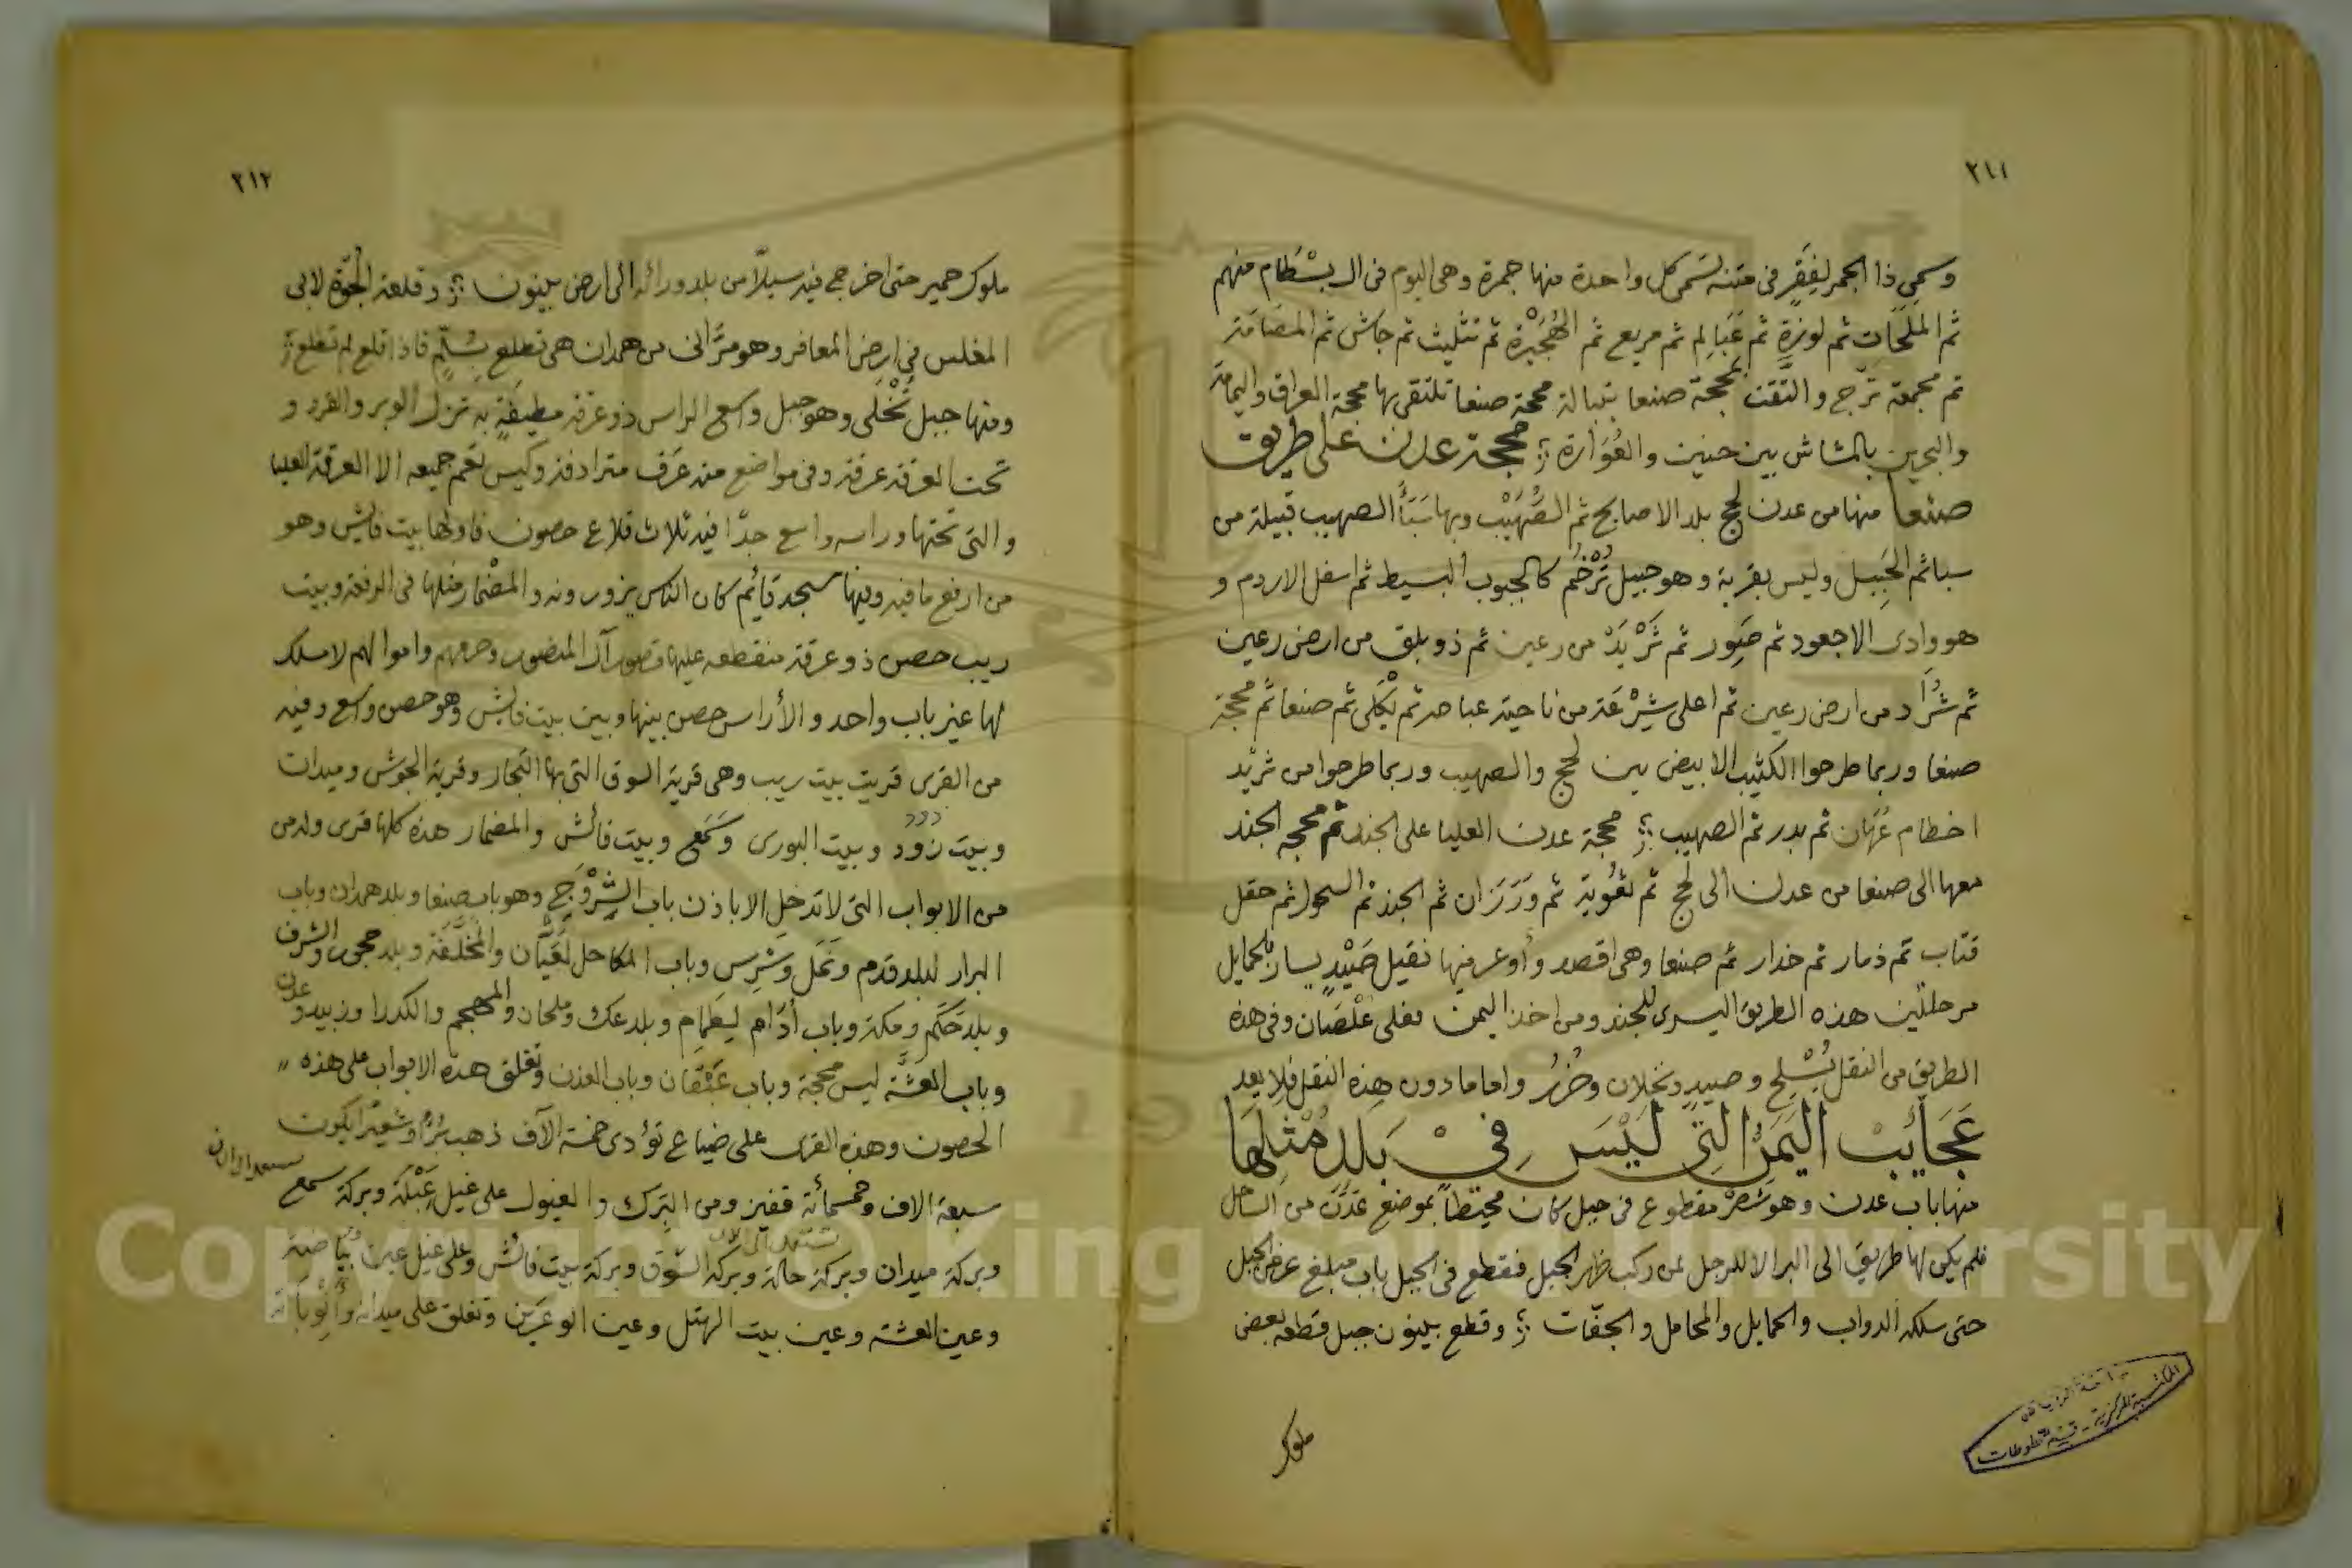 ٢١١
وسمى ذا الجمر لفقر في متنه تسمى كل واحدة منها جمرة وهي اليوم في ال بسطام منهم
ثم الملحات ثم لوزة ثم عبالم ثم مريع ثم الهجيرة ثم تثليث ثم جاش ثم المصامة
ثم مجمعة ترج والتقت بمحجة صنعا بتبالة محجة صنعا تلتقي بها محجة العراق واليمامة
والبحرين بالمشاش بين حنين والفوارة محجة عدن على طريق
صنعا منها من عدن لحج بلد الاصابح ثم الصهيب وبها سبأ الصهيب قبيلة من
سبا ثم الجبيل وليس بقرية وهو جبيل ترخم كالجبوب البسيط ثم اسفل الاردم و
هو وادى الاجعود ثم صور ثم ثريد من رعين ثم ذو بلق من ارض رعين
ثم شراد من ارض رعين ثم اعلى شرعة من ناحية عباصر ثم يكلى ثم صنعا ثم محجة
صنعا وربما طرحوا الكثيب الابيض بين لحج والصهيب وربما طرحوا من ثريد
اخطام عهان ثم بدر ثم الصهيب محجة عدن العليا على الجند ثم محجه الجند
معها الى صنعا من عدن الى لحج ثم ثعوبة ثم ورزان ثم الجند ثم السحول ثم حقل
قتاب ثم ذمار ثم خدار ثم صنعا وهي اقصد وأوعر فيها نقيل صيد يسار بالحمايل
مرحلتين هذه الطريق اليسرى للجند ومن اخذ اليمن فعلى علصان وفي هذه
الطريق من النقل يسلح وصيد ونخلان وخزر واما ما دون هذه النقل فلا يعد
عجائب اليمن التي ليس في بلد مثلها
منها باب عدن وهو شصر مقطوع في جبل كان محيطا بموضع عدن من الساحل
فلم يكن لها طريق الى البر الا للرجل لمن ركب ظهر الجبل فقطع في الجبل باب مبلغ عرض الجبل
حتى سلكه الدواب والحمايل والمحامل والجحفات وقطع بينون جبل قطعه بعض
ملوك
المكتبة المركزية - قسم المخطوطات
٢١٢
ملوك حمير حتى اخرج فيه سيلا من بلد ورائه الى ارض بينون وقلعة الجوة لابى
المغلس في ارض المعافر وهو مرانى من همدان هي تطلع بسلم فاذا قلع لم تطلع
ومنها جبل تخلى وهو جبل واسع الراس ذو عرقة مطيفة به تزل الوبر والقرد و
تحت العرقة عرقة وفي مواضع منه عرف مترادفة وليس تعم جميعه الا العرقة العليا
والتي تحتها وراسه واسع جدا فيه ثلاث قلاع حصون فاولها بيت فائش وهو
من ارفع ما فيه وفيها مسجد قائم كان الناس يزورونه والمضمار مثلها في الرفعة وبيت
ريب حصن ذو عرقة منقطعه عليها قصور آل المنصور وحرمهم واموالهم لا مسلك
لها غير باب واحد والأراس حصن بينها وبين بيت فائش وهو حصن واسع وفيه
من القرى قريت بيت ريب وهي قرية السوق التي بها التجار وقرية الجوش وميدان
وبيت زود وبيت البورى وكمع وبيت فائش والمضمار هذه كلها قرى وله من
من الابواب التي لا تدخل الا باذن باب الشروج وهو باب صنعا وبلد همدان وباب
البرار لبلد قدم ونمل وشرس وباب المكاحل لعيان والمخلفة وبلد حجور والشرف
وبلد حكم ومكة وباب أدام ليعمام وبلد عك وملحان والمهجم والكدرا وزبيد وعدن
وباب العشة ليس محجة وباب عقفان وباب العذن وتغلق هذه الابواب على هذه
الحصون وهذه القرى على ضياع تؤدى خمسة الآف ذهب برا وشعيرا يكون
سبعة الاف وخمسمائة قفيز ومن البرك والغيول على غيل عبلة وبركة سمع
وبركة ميدان وبركة حالة وبركة السوق وبركة بيت فائش وعلى غيل عين بياضة
وعين العشه وعين بيت الهتل وعين الوعرين وتغلق على ميدان